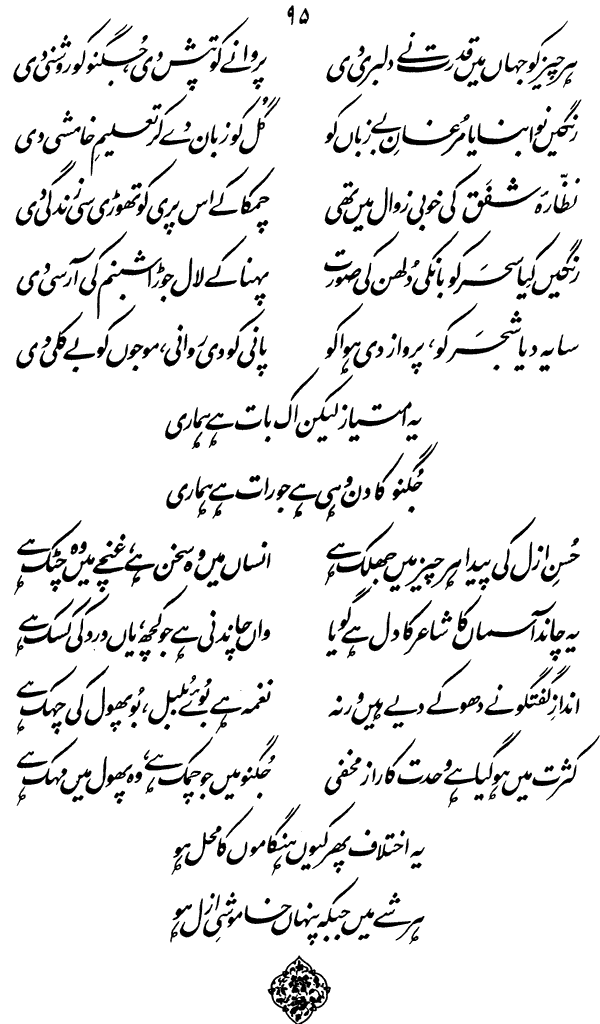 ۹۵
ہر چیز کو جہاں میں قدرت نے دلبری دی پروانے کو تپش دی، جگنو کو روشنی دی
رنگیں نوا بنایا مرغانِ بے زباں کو گُل کو زبان دے کر تعلیمِ خامشی دی
نظّارۂ شفَق کی خوبی زوال میں تھی چمکا کے اس پری کو تھوڑی سی زندگی دی
رنگیں کیا سحَر کو، بانکی دُلھن کی صورت پہنا کے لال جوڑا شبنم کی آرسی دی
سایہ دیا شجَر کو، پرواز دی ہوا کو پانی کو دی روانی، موجوں کو بے کلی دی
یہ امتیاز لیکن اک بات ہے ہماری
جُگنو کا دن وہی ہے جو رات ہے ہماری
حُسنِ ازل کی پیدا ہر چیز میں جھلک ہے انساں میں وہ سخن ہے، غنچے میں وہ چٹک ہے
یہ چاند آسماں کا شاعر کا دل ہے گویا واں چاندنی ہے جو کچھ، یاں درد کی کسک ہے
اندازِ گفتگو نے دھوکے دیے ہیں ورنہ نغمہ ہے بُوئے بُلبل، بُو پھول کی چہک ہے
کثرت میں ہو گیا ہے وحدت کا راز مخفی جُگنو میں جو چمک ہے، وہ پھول میں مہک ہے
یہ اختلاف پھر کیوں ہنگاموں کا محل ہو
ہر شے میں جبکہ پنہاں خاموشیِ ازل ہو